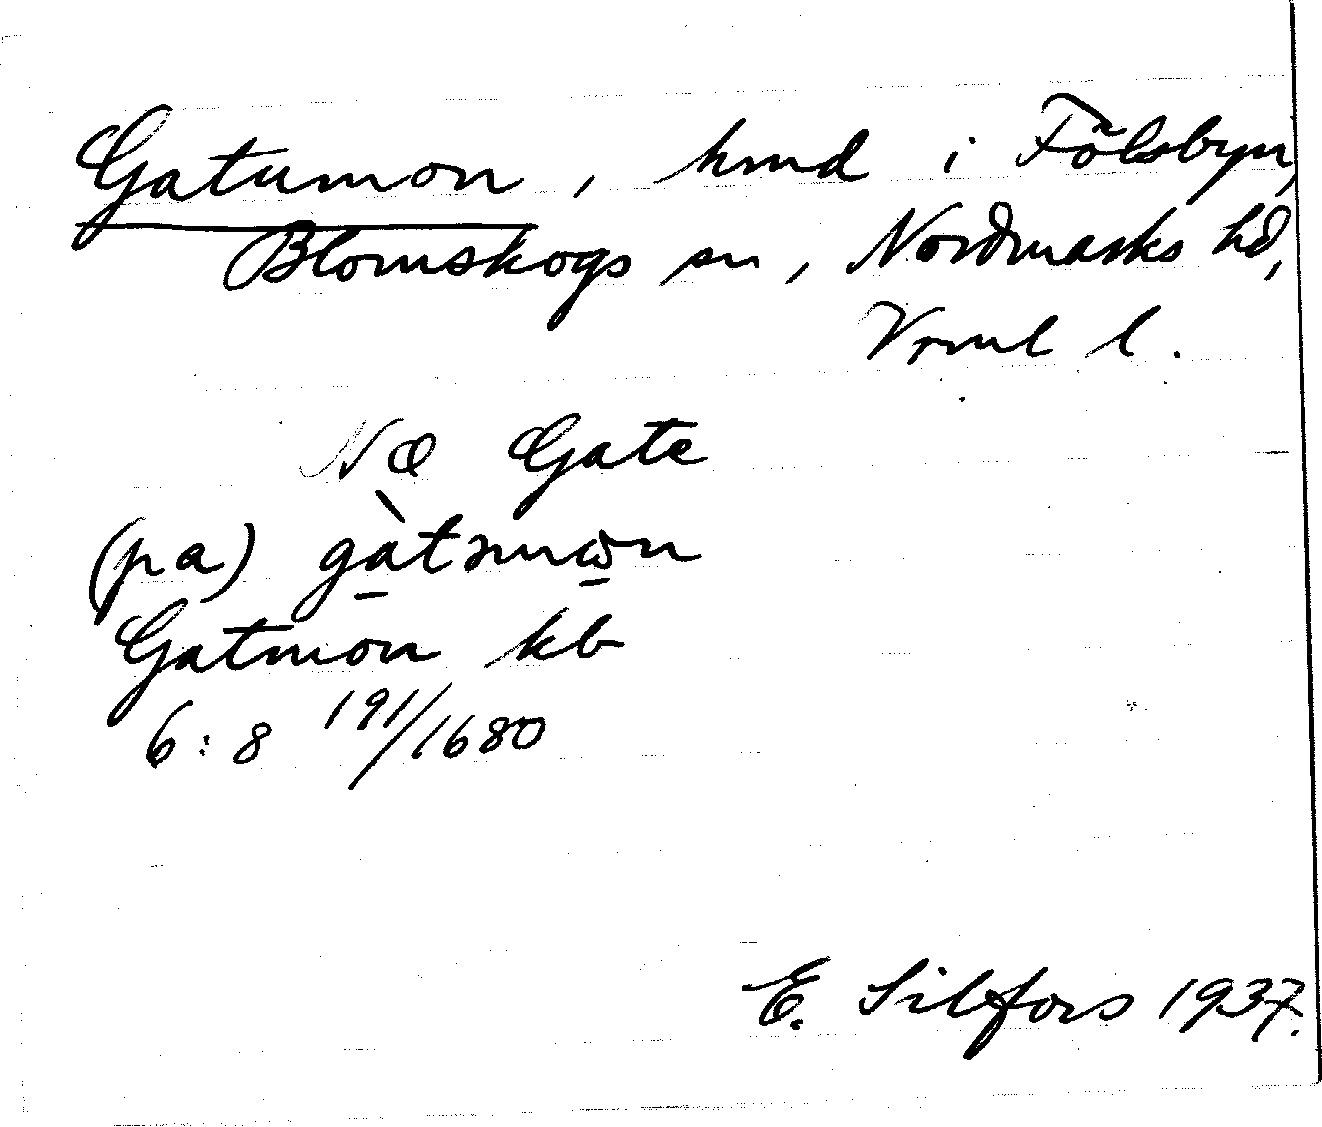 Gatumon, hmd i Fölsbyn,
Blomskogs sn, Nordmarks hd,
Vrml l.
NO Gate
(pa) gàtmωn
Gatmon kb
6:8 191/1680
E. Silfors 1937.